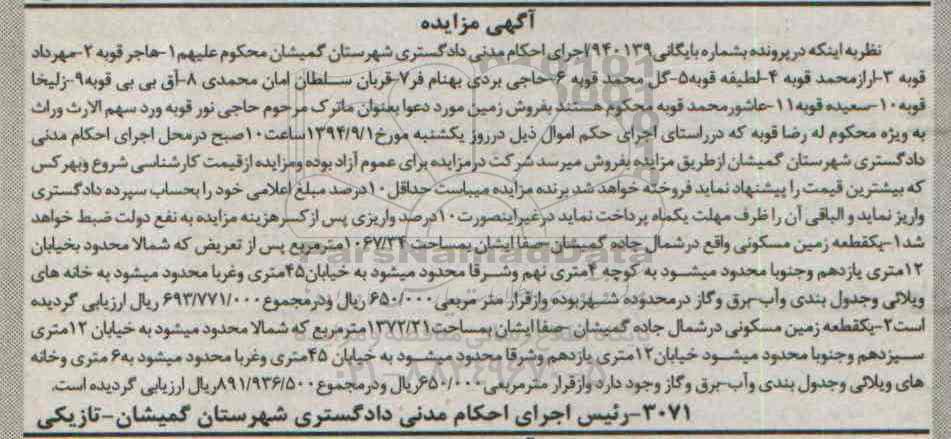 آگهی مزایده
نظر به اینکه در پرونده بشماره بایگانی ۹۴۰۱۳۹/اجرای احکام مدنی دادگستری شهرستان گمیشان محکوم علیهم ۱-هاجر قوبه ۲-مهرداد
قوبه ۳-ارازمحمد قوبه ۴-لطیفه قوبه۵-گل محمد قوبه ۶-حاجی بردی بهنام فر۷-قربان سلطان امان محمدی ۸-آق بی بی قوبه۹-زلیخا
قوبه۱۰-سعیده قوبه۱۱-عاشورمحمد قوبه محکوم هستند بفروش زمین مورد دعوا بعنوان ماترک مرحوم حاجی نور قوبه ورد سهم الارث وراث
به ویژه محکوم له رضا قوبه که درراستای اجرای حکم اموال ذیل درروز یکشنبه مورخ۱۳۹۴/۹/۱ساعت۱۰صبح درمحل اجرای احکام مدنی
دادگستری شهرستان گمیشان ازطریق مزایده بفروش میرسد شرکت درمزایده برای عموم آزاد بوده ومزایده ازقیمت کارشناسی شروع وبهر کس
که بیشترین قیمت را پیشنهاد نماید فروخته خواهد شد برنده مزایده میباست حداقل ۱۰درصد مبلغ اعلامی خود را بحساب سپرده دادگستری
واریز نماید و الباقی آن را ظرف مهلت یکماه پرداخت نماید درغیراینصورت۱۰درصد واریزی پس ازکسرهزینه مزایده به نفع دولت ضبط خواهد
شد۱-یکقطعه زمین مسکونی واقع درشمال جاده گمیشان-صفا ایشان بمساحت ۱۰۶۷/۳۴مترمربع پس از تعریض که شمالا محدود بخیابان
۱۲متری یازدهم وجنوبا محدود میشود به کوچه ۴متری نهم وشرقا محدود میشود به خیابان۴۵متری وغربا محدود میشود به خانه های
ویلائی وجدول بندی وآب-برق وگاز درمحدوده شهربوده وازقرار متر مربعی۶۵۰/۰۰۰ ریال ودرمجموع۶۹۳/۷۷۱/۰۰۰ ریال ارزیابی گردیده
است۲-یکقطعه زمین مسکونی درشمال جاده گمیشان-صفا ایشان بمساحت۱۳۷۲/۲۱مترمربع که شمالا محدود میشود به خیابان ۱۲متری
سیزدهم وجنوبا محدود میشود خیابان۱۲متری یازدهم وشرقا محدود میشود به خیابان ۴۵متری وغربا محدود میشود به۶ متری وخانه
های ویلائی وجدول بندی وآب-برق وگاز وجود دارد وازقرار مترمربعی۶۵۰/۰۰۰ریال ودرمجموع۸۹۱/۹۳۶/۵۰۰ریال ارزیابی گردیده است.
۳۰۷۱-رئیس اجرای احکام مدنی دادگستری شهرستان گمیشان-تازیکی
ParsNamadData